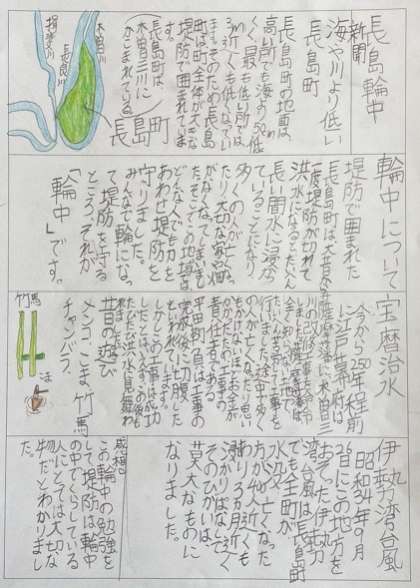 長島輪中
新聞
海や川より低い
長島町
長島町の地面は
高い所でも海より50㎝
くらい、最も低い所では
3m近くも低くなってい
ます。そのため長島
町は町全体が大きな
堤防で囲まれていま
す。
長島町は
木曽三川に
かこまれている。
木曽川
長良川
揖斐川
長島町
輪中について
堤防で囲まれた
長島町は、
一度堤防が切れて
洪水になるとたいへん
長い間水に浸かっ
ていることになり、
多くの人が亡くなっ
たり大切な家や畑
がなくなってしまいま
す。そこでこの地域は
どんな人でも力を
あわせ堤防を
守りました。
みんなで輪になっ
て堤防を守る
ところ、それが
「輪中」です。
宝暦治水
今から250年程前
に江戸幕府は
川の改修工事を命令
行いました。途中多く
の人が亡くなったり思い
もかけないほどお金が
責任者である
平田靱負は工事の
完成後に切腹した
といわれています。
しかしこの工事は成功
したとはいえずその後も
たびたび洪水に見舞わ
れました。
昔の遊び
メンコ、こま、竹馬
チャンバラ、
竹馬
こま
伊勢湾台風
昭和34年9月
26日にこの地方を
おそった伊勢
湾台風は長島町
でも全町が
水没
方が4人近くも
あり3ヵ月近く
つかりぱなしで
そのひがいは、
莫大なものに
なりました。
感想
この輪中の勉強を
して堤防は輪中
の中でくらしている
人にとっては大切な
物だとわかりまし
た。